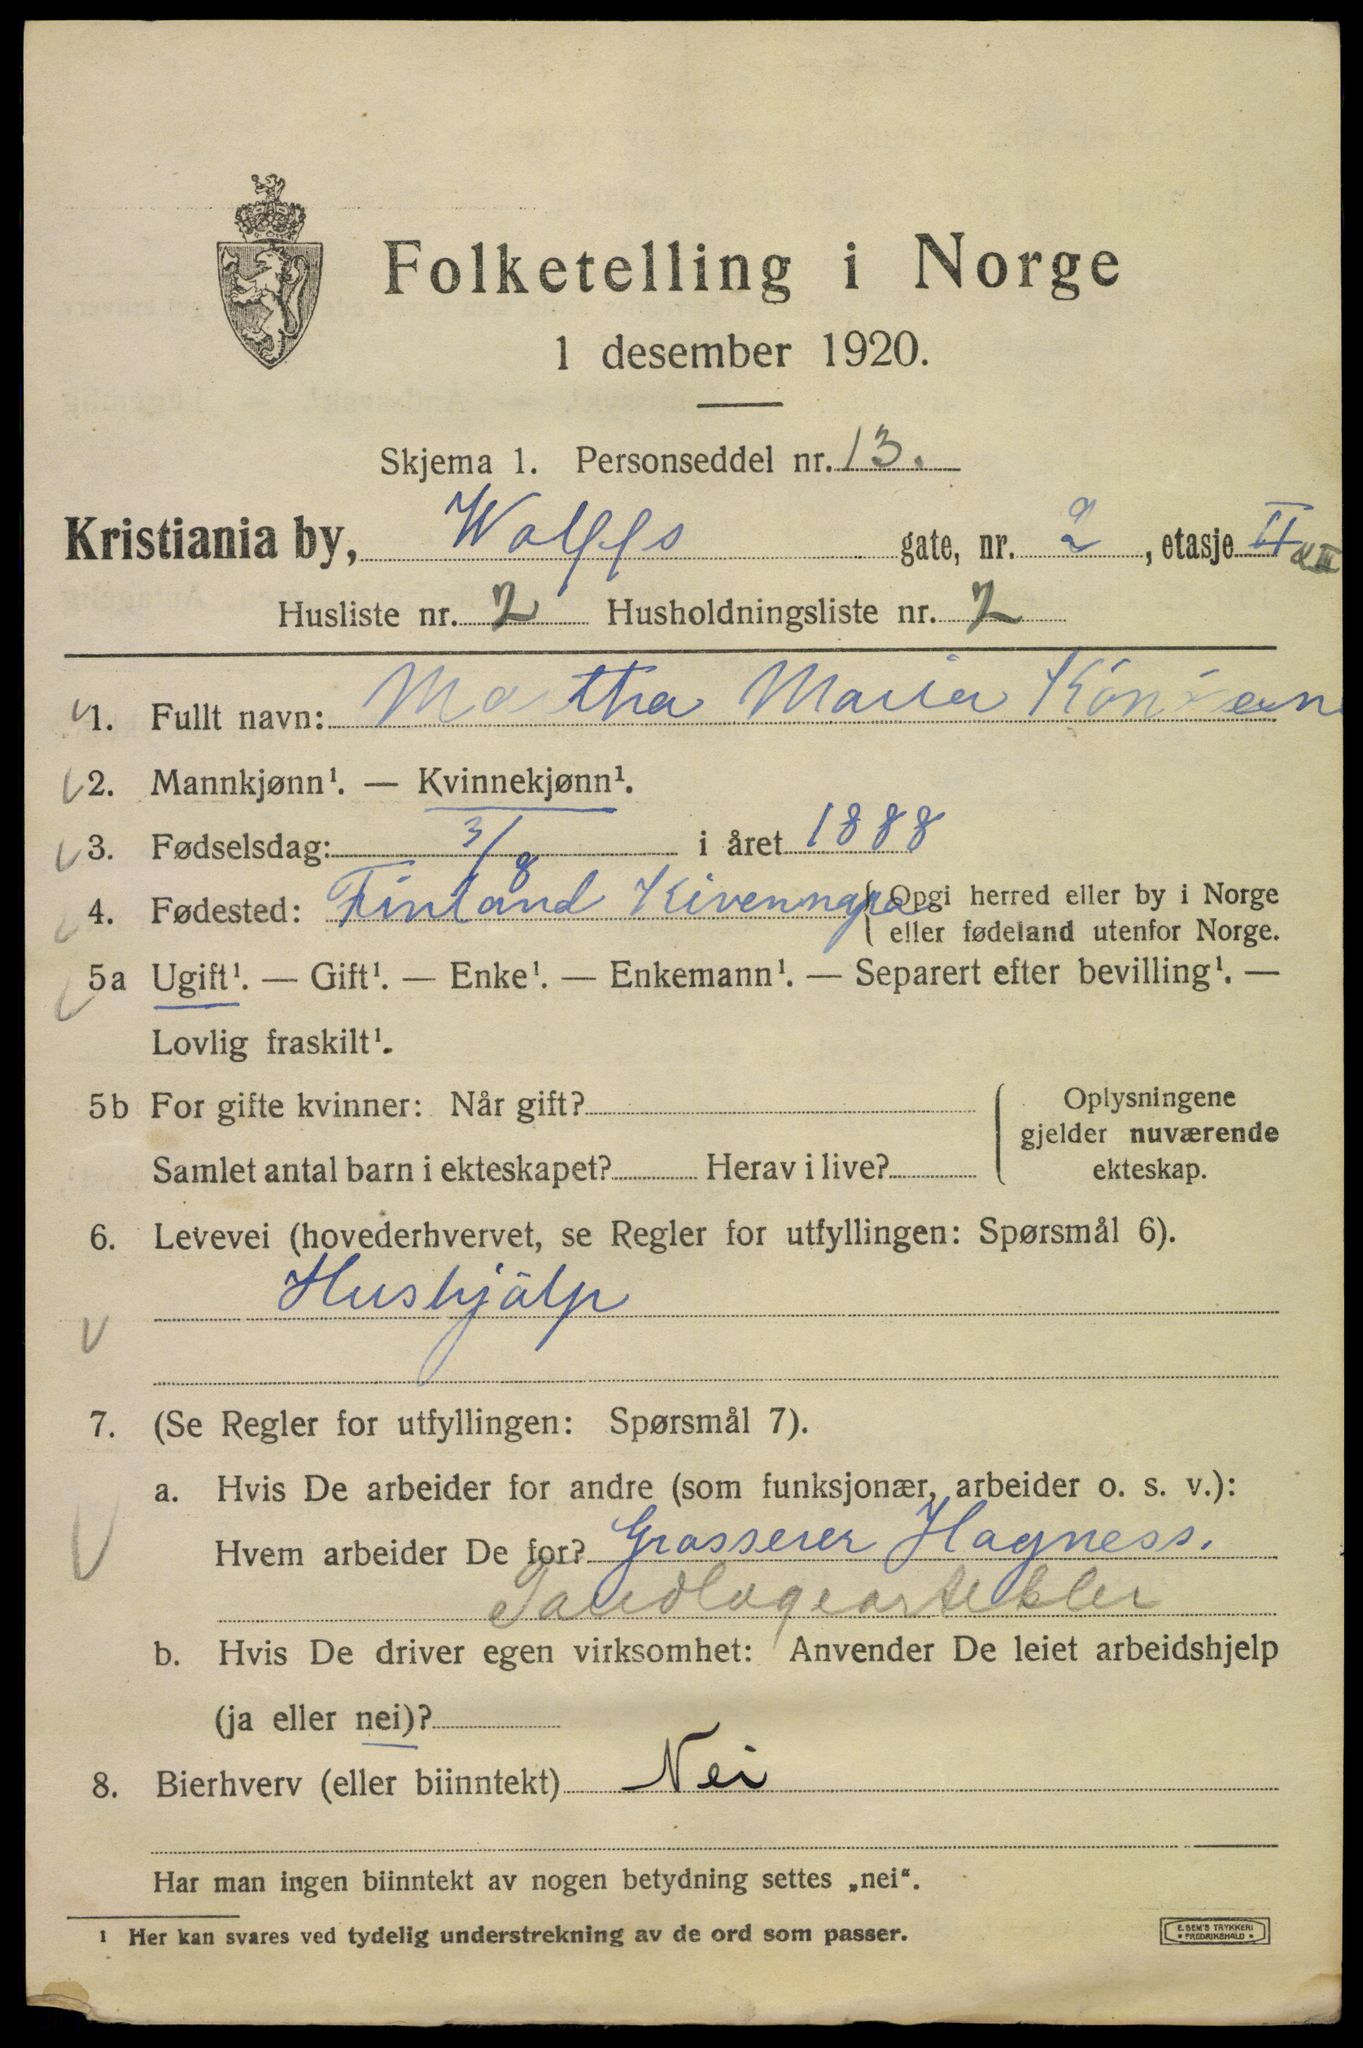 Folketelling i Norge
1 desember 1920.
Skjema 1. Personseddel nr. 13.
Kristiania by, Wolffs gate, nr. 2, etasje II
Husliste nr. 2 Husholdningsliste nr. 2
1. Fullt navn: Martha Maria
2. Mannkjønn¹. — Kvinnekjønn¹.
3. Fødselsdag: 3/8 i året 1888
4. Fødested: Finland { Opgi herred eller by i Norge
eller fødeland utenfor Norge.
5a Ugift¹. — Gift¹. — Enke¹. — Enkemann¹. — Separert efter bevilling¹. —
Lovlig fraskilt¹.
5b For gifte kvinner: Når gift?
Samlet antal barn i ekteskapet? Herav i live?
Oplysningene
gjelder nuværende
ekteskap.
6. Levevei (hovederhvervet, se Regler for utfyllingen: Spørsmål 6).
Hushjälp
7. (Se Regler for utfyllingen: Spørsmål 7).
a. Hvis De arbeider for andre (som funksjonær, arbeider o. s. v.):
Hvem arbeider De for? Grosserer Hagness.
Tandlægeartikler
b. Hvis De driver egen virksomhet: Anvender De leiet arbeidshjelp
(ja eller nei)?
8. Bierhverv (eller biinntekt) Nei
Har man ingen biinntekt av nogen betydning settes „nei“.
¹ Her kan svares ved tydelig understrekning av de ord som passer.
E. SEM'S TRYKKERI
FREDRIKSHALD